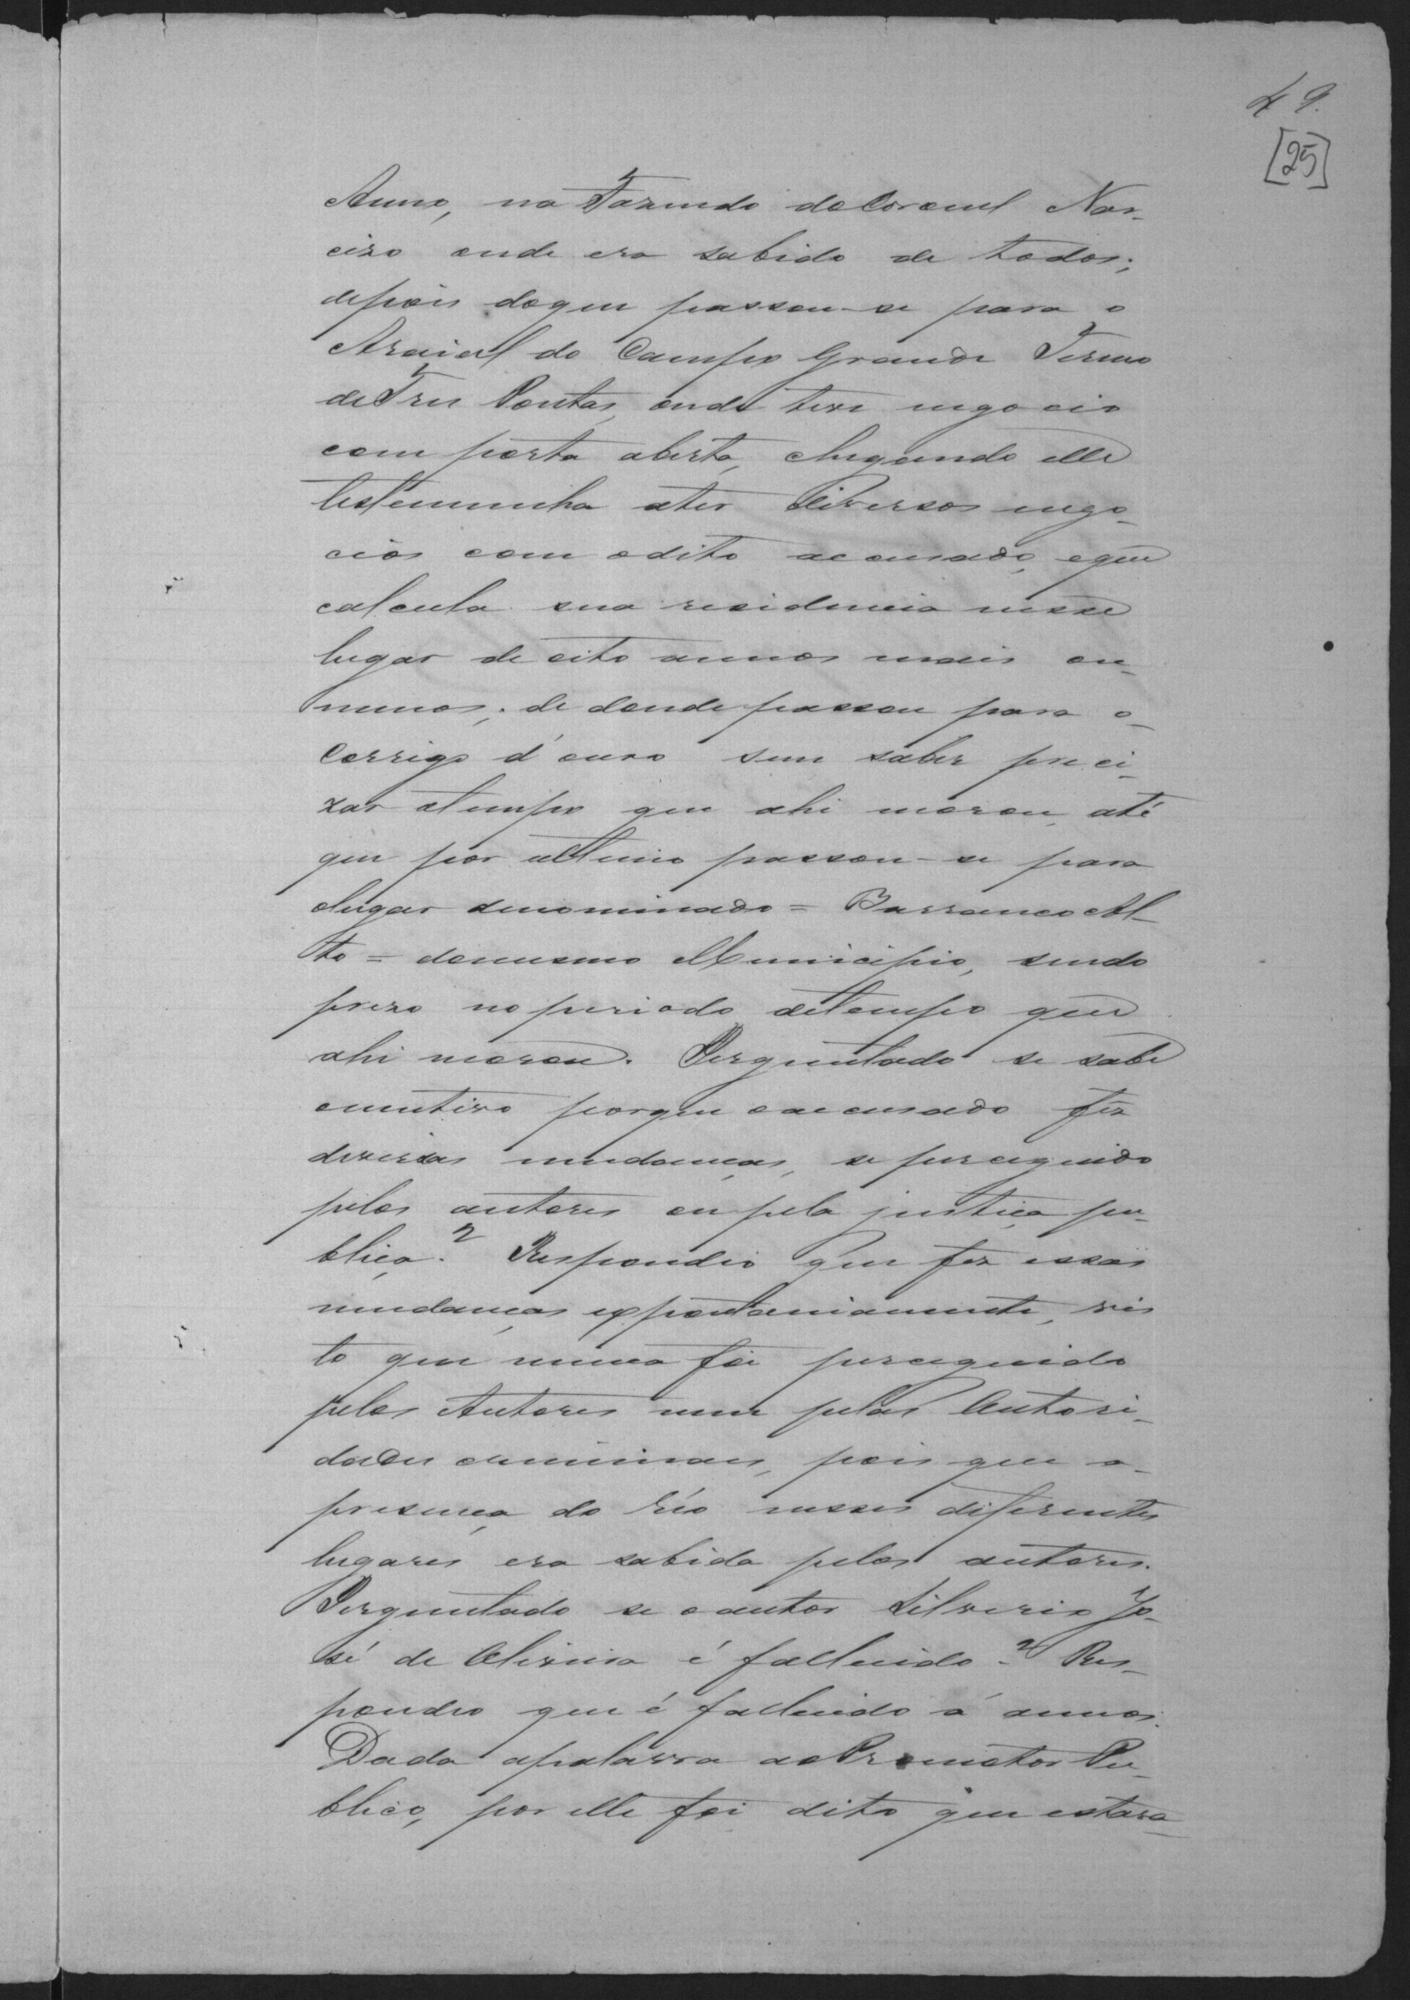 49.
[25]
Anno, na Fazenda do Coronel Nar-
cizo onde era sabido de todos;
depois do que passou-se para o
Araial do Campo Grande Termo
de Tres Pontas, onde teve negocio
com porta aberta, chegando elle
testemunha a ter diversos nego-
cios com o dito accusado, e que
calcula sua residencia nesse
lugar de oito annos mais ou
menos; de donde passou para o
Corrigo d'ouro sem saber preci-
zar o tempo que ahi morou, até
que por ultimo passou-se para
o lugar denominado = Barranco Al-
to = do mesmo Municipio, sendo
prezo no periodo de tempo que
ahi morou. Perguntado se sabe
o motivo porque o accusado fez
diversas mudanças, se perseguido
pelos autores ou pela justiça pu-
blica? Respondeo que fez essas
mudanças expontaniamente, vis
to que nunca foi perseguido
pelos Autores nem pelas Autori-
dades criminaes, pois que a
presença do réo nesses diferentes
lugares era sabida pelos autores.
Perguntado se o autor Silverio Jo-
sé de Oliveira é fallecido? Res-
pondeo que é fallecido á annos.
Dada a palavra ao Promotor Pu-
blico, por elle foi dito que estava